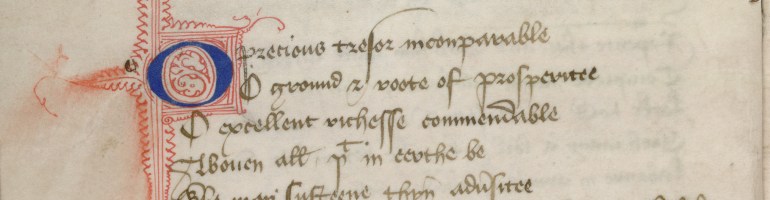 O precious tresor inconparable
O ground & roote of prosperitee
O excellent richesse commendable
Aboven all þt in eerthe be
Who may susteene thyn aduersitee